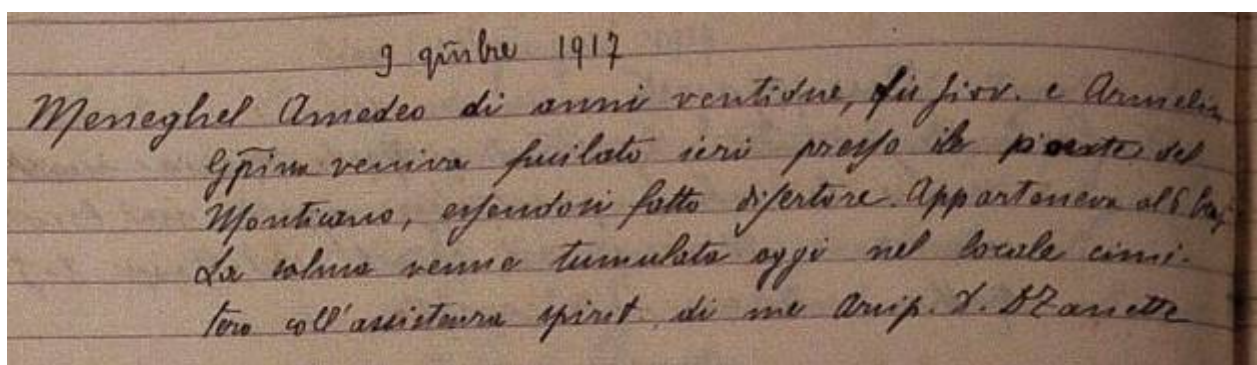 9 9mbre 1917
Meneghel Amedeo di anni ventidue, fu Giov. e Armelin
veniva fucilato ieri presso il ponte del
Monticano, essendosi fatto disertore. Apparteneva al 6
La salma venne tumulata oggi nel locale cimi-
tero coll'assistenza spirit. di me Arcip. D. DZanette